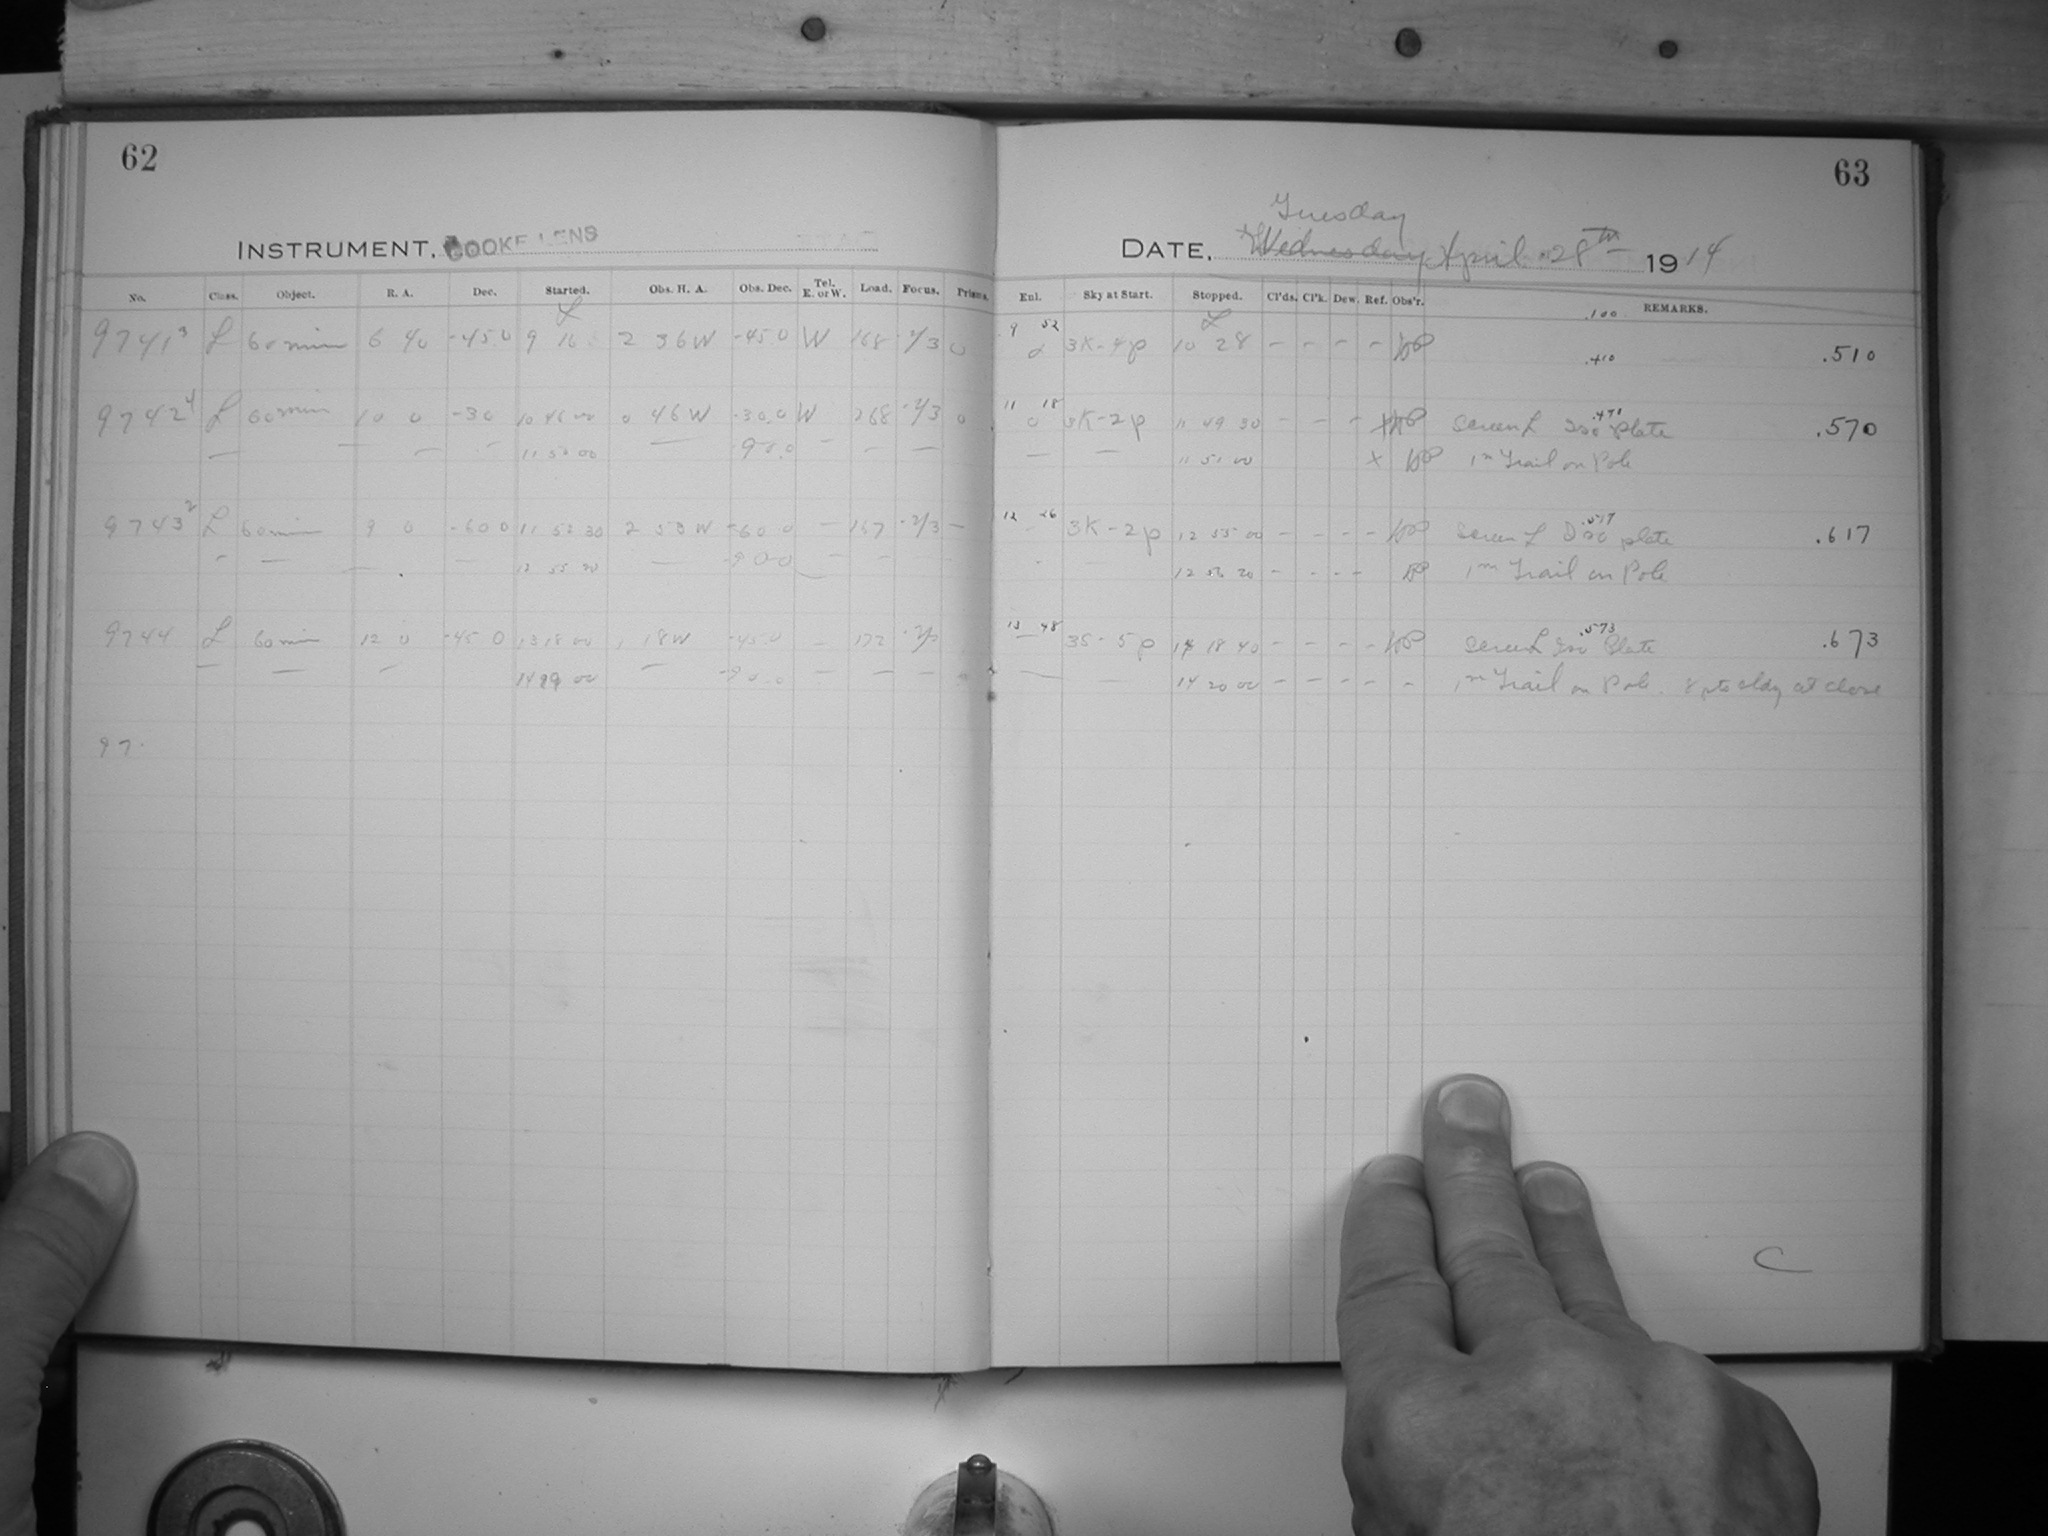 62
INSTRUMENT, COOKE LENS
No. Class. Object. R. A. Dec. Started. Obs. H. A. Obs. Dec. Tel. E. or W. Load. Focus. Prisms.
9741 3 L 60 min 6 40 -45.0 9 16 2 36 W -45.0 W 168 0
9742 4 L 60 min 10 0 -30 10 46 00 0 46 W -30.0 W 268 0
— — — 11 50 00 — -90.0 — — —
9743 2 L 60 min 9 0 -60 0 11 53 30 2 53 W -60 0 — 167 —
— — — — 12 55 20 — -90.0 — —
9744 L 60 min 12 0 -45 0 13 18 00 1 18 W -45.0 — 172
— — — 14 19 00 — -90.0 — — —
97
63
Tuesday
DATE, Wednesday April 28th 1914
Enl. Sky at Start. Stopped. Cl'ds. Cl'k. Dew. Ref. Obs'r. REMARKS.
.100
9 52 3K-4p 10 28 - - - - .410 .510
11 18 0 3K-2p 11 49 30 - - - Screen L Iso plate .470 .570
— — 11 51 00 X 1m Trail on Pole
12 26 - 3K-2p 12 55 00 - - - - Screen L Iso plate .517 .617
- - 12 56 20 - - - - 1m Trail on Pole
13 48 — 3S-5p 14 18 40 - - - - Screen L Iso Plate .573 .673
— — 14 20 00 - - - - - 1m Trail on Pole. 8 pts cldy at close
C